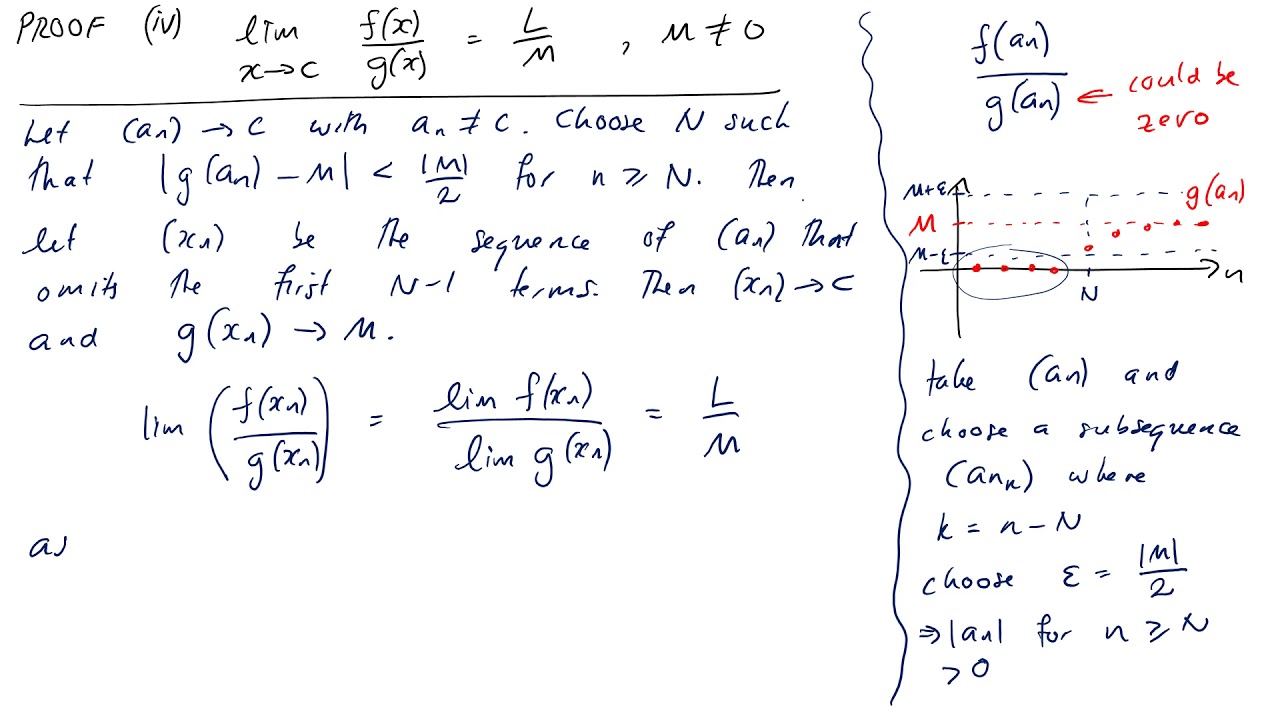 PROOF (iv) lim x→c f(x)/g(x) = L/M , M ≠ 0
Let (an) → c with an ≠ c. Choose N such
that |g(an) - M| < |M|/2 for n ≥ N. Then
let (xn) be the sequence of (an) that
omits the first N-1 terms. Then (xn) → c
and g(xn) → M.
lim (f(xn)/g(xn)) = lim f(xn)/lim g(xn) = L/M
as
f(an)/g(an) ← could be
zero
M+ε
g(an)
M
M-ε
n
N
take (an) and
choose a subsequence
(ank) where
k = n - N
choose ε = |M|/2
⇒ |an| for n ≥ N
> 0